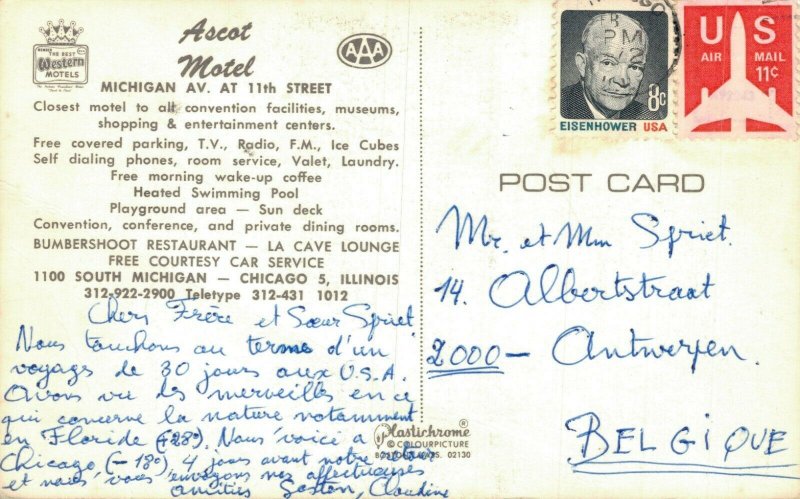 MEMBER
THE BEST
Western
MOTELS
Ascot
Motel
AAA
MICHIGAN AV. AT 11th STREET
Closest motel to all convention facilities, museums,
shopping & entertainment centers.
Free covered parking, T.V., Radio, F.M., Ice Cubes
Self dialing phones, room service, Valet, Laundry.
Free morning wake-up coffee
Heated Swimming Pool
Playground area — Sun deck
Convention, conference, and private dining rooms.
BUMBERSHOOT RESTAURANT — LA CAVE LOUNGE
FREE COURTESY CAR SERVICE
1100 SOUTH MICHIGAN — CHICAGO 5, ILLINOIS
312-922-2900 Teletype 312-431 1012
Chers Frère et Sœur Spriet
Nous touchons au terme d'un
voyage de 30 jours aux U.S.A.
Avons vu des merveilles en ce
qui concerne la nature notamment
en Floride (+28°). Nous voici à
Chicago (-18°) 4 jours avant notre retour
et nous vous envoyons nos affectueuses
amitiés Gaston, Claudine
Plastichrome ®
© COLOURPICTURE
BOSTON, MASS. 02130
PM
8c
EISENHOWER USA
US
AIR MAIL
11c
POST CARD
Mr. et Mm Spriet.
14. Albertstraat
2000 — Antwerpen.
BELGIQUE